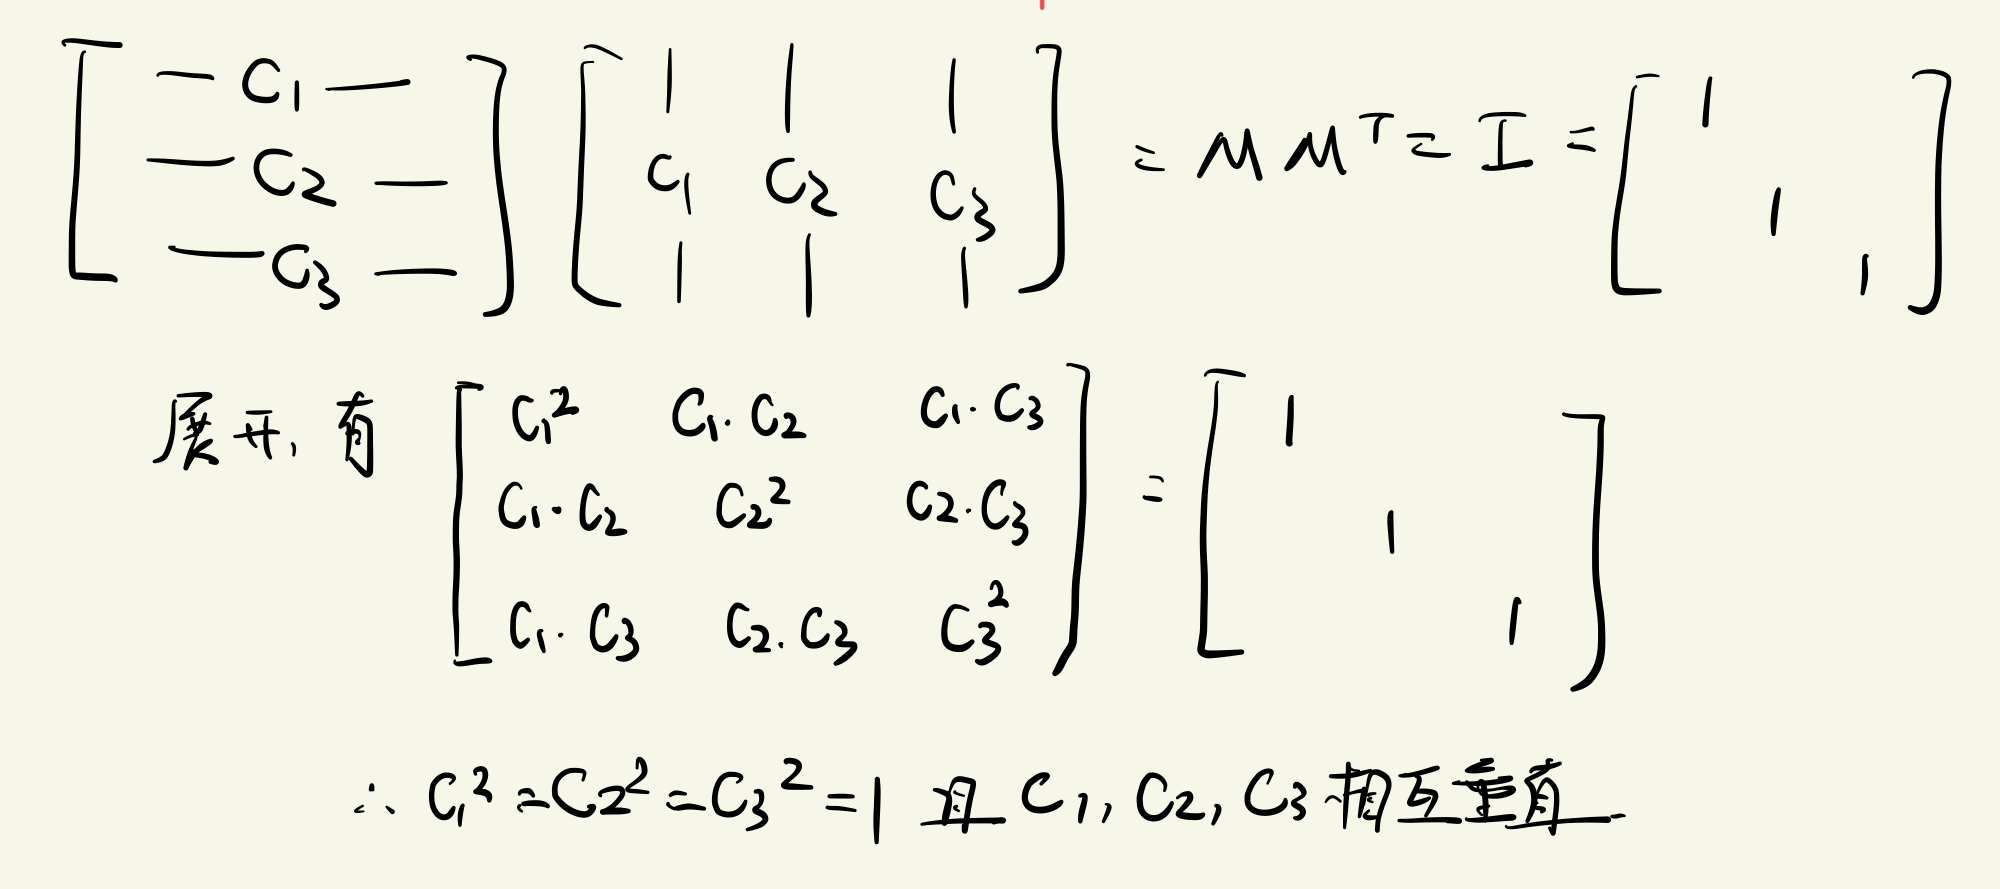 [— C1 — — C2 — — C3 —] [| C1 | | C2 | | C3 |] = M Mᵀ = I = [1 1 1]
展开, 有 [C1² C1·C2 C1·C3
C1·C2 C2² C2·C3
C1·C3 C2·C3 C3²] = [1 1 1]
∴ C1² = C2² = C3² = 1 且 C1, C2, C3 相互垂直